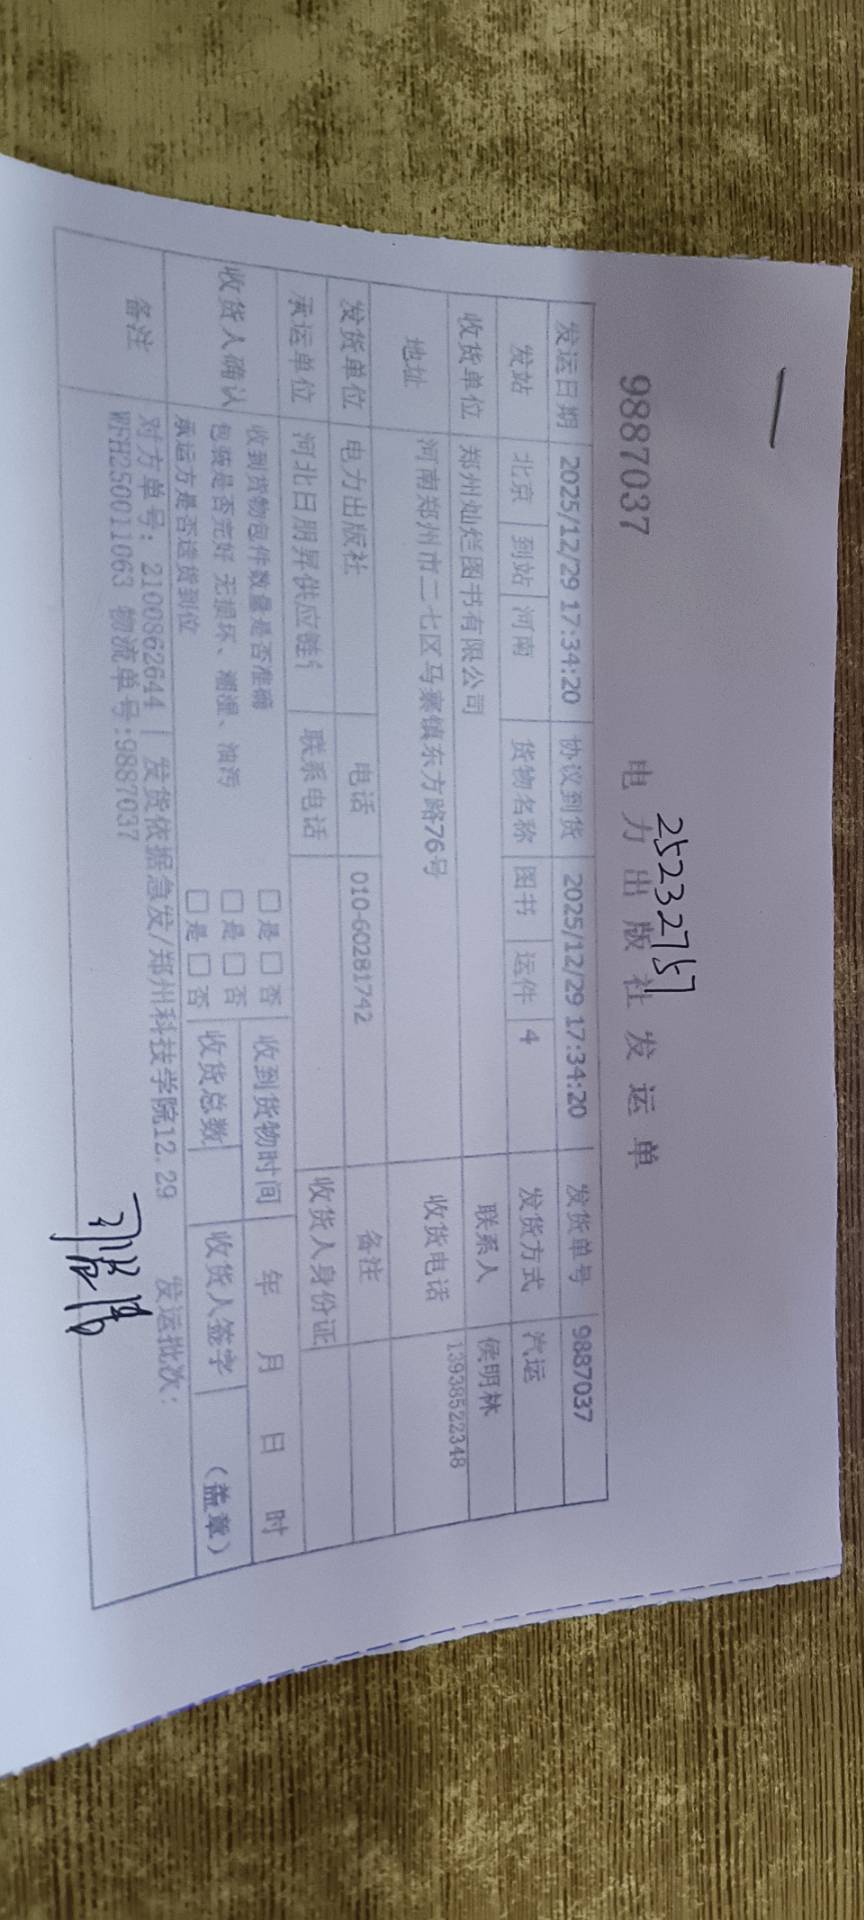 25232757
9887037 电力出版社发运单
发运日期 2025/12/29 17:34:20 协议到货 2025/12/29 17:34:20 发货单号 9887037
发站 北京 到站 河南 货物名称 图书 运件 4 发货方式 汽运
收货单位 郑州灿烂图书有限公司 联系人 侯明林
地址 河南郑州市二七区马寨镇东方路76号 收货电话 13938522348
发货单位 电力出版社 电话 010-60281742 备注
承运单位 河北日朋昇供应链 联系电话 收货人身份证
收货人确认 收到货物包件数量是否准确 □是 □否 收到货物时间 年 月 日 时
包装是否完好 无损坏、潮湿、油污 □是 □否
承运方是否送货到位 □是 □否 收货总数 收货人签字 (盖章)
备注 对方单号: 2100862644 | 发货依据急发/郑州科技学院12.29 发运批次:
WFH250011063 物流单号:9887037